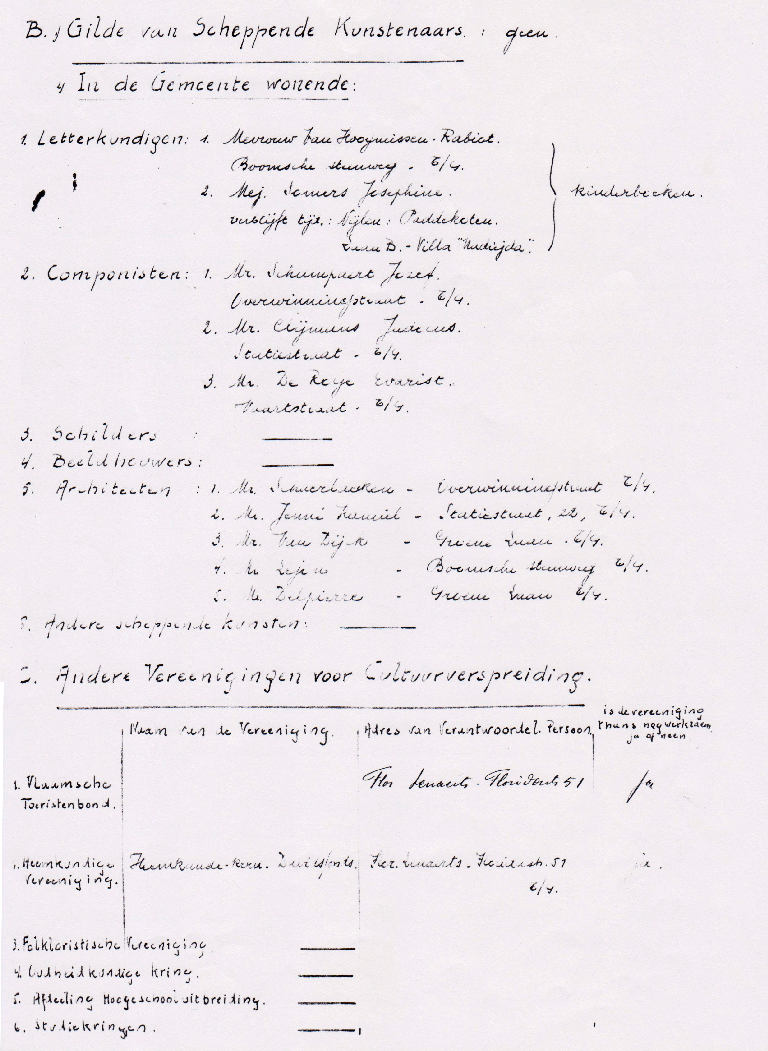 B. Gilde van Scheppende Kunstenaars. : geen.
In de Gemeente wonende:
1. Letterkundigen: 1. Mevrouw Van Hooymissen-Rabiet.
Boomsche steenweg. E/4.
2. Mej. Somers Josephine. kinderboeken.
verblijft tijd.: Nijlen: Paddekoten.
Laan B. - Villa
2. Componisten: 1. Mr. Schampaert Jozef.
Overwinningstraat. E/4.
2. Mr. Clijmans
Statiestraat - E/4.
3. Mr. De Reye Evarist.
Vaartstraat. E/4.
3. Schilders :
4. Beeldhouwers:
5. Architecten : 1. Mr. - Overwinningstraat E/4.
2. Mr. - Statiestraat, 22, E/4.
3. Mr. Van Dijk - Groene Laan. E/4.
4. Mr - Boomsche steenweg E/4.
5. Mr. Delpierre - Groene Laan E/4.
6. Andere scheppende kunsten:
C. Andere Vereenigingen voor Cultuurverspreiding.
Naam van de Vereeniging. Adres van Verantwoordel. Persoon is de vereeniging
thans nog werkzaam
ja of neen
1. Vlaamsche
Toeristenbond. Flor Lenaerts. 51 Ja
2. Heemkundige
Vereeniging. Heemkunde-kern. Lenaerts. 51 ja.
E/4.
3. Folkloristische Vereeniging
4. Oudheidkundige kring.
5. Afdeeling Hoogeschooluitbreiding.
6. Studiekringen.